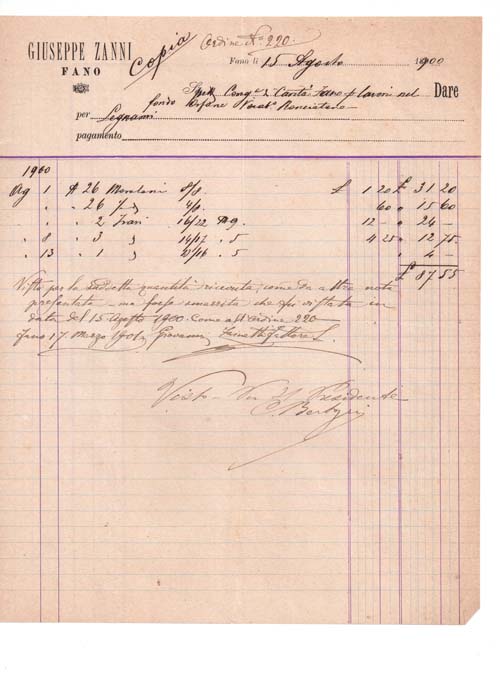 GIUSEPPE ZANNI
FANO
Copia
Ordine N° 220.
Fano li 15 Agosto 1900
Cong.e di Carità Fano p lavori nel Dare
fondo Orfane
per Legnami
pagamento
1900
Ag 1 N 26 Morelani 8/8. £ 1 20 £ 31 20
" " 26 4/8. 60 " 15 60
" " 2 Travi 16/22 M 9. 12 - " 24 -
" 8 " 3 " 14/17 " 5 4 25 " 12 75
" 13 " 1 " " 5 " 4 -
£ 87 55
Visto per la suddetta quantità ricevuta, come da altra nota
presentata - ma forse smarrita che fu vistata in
data del 15 Agosto 1900. Come all'Ordine 220
Fano 17. Marzo 1901 Giovanni
Visto - Per Il Presidente
C.